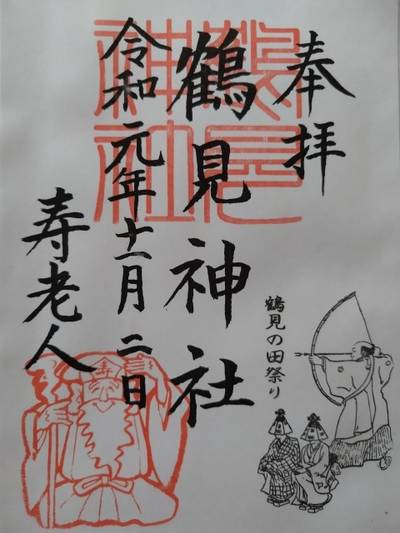 奉拝
鶴見神社
令和元年十一月二日
寿老人
鶴見の田祭り
鶴見
神社
寿